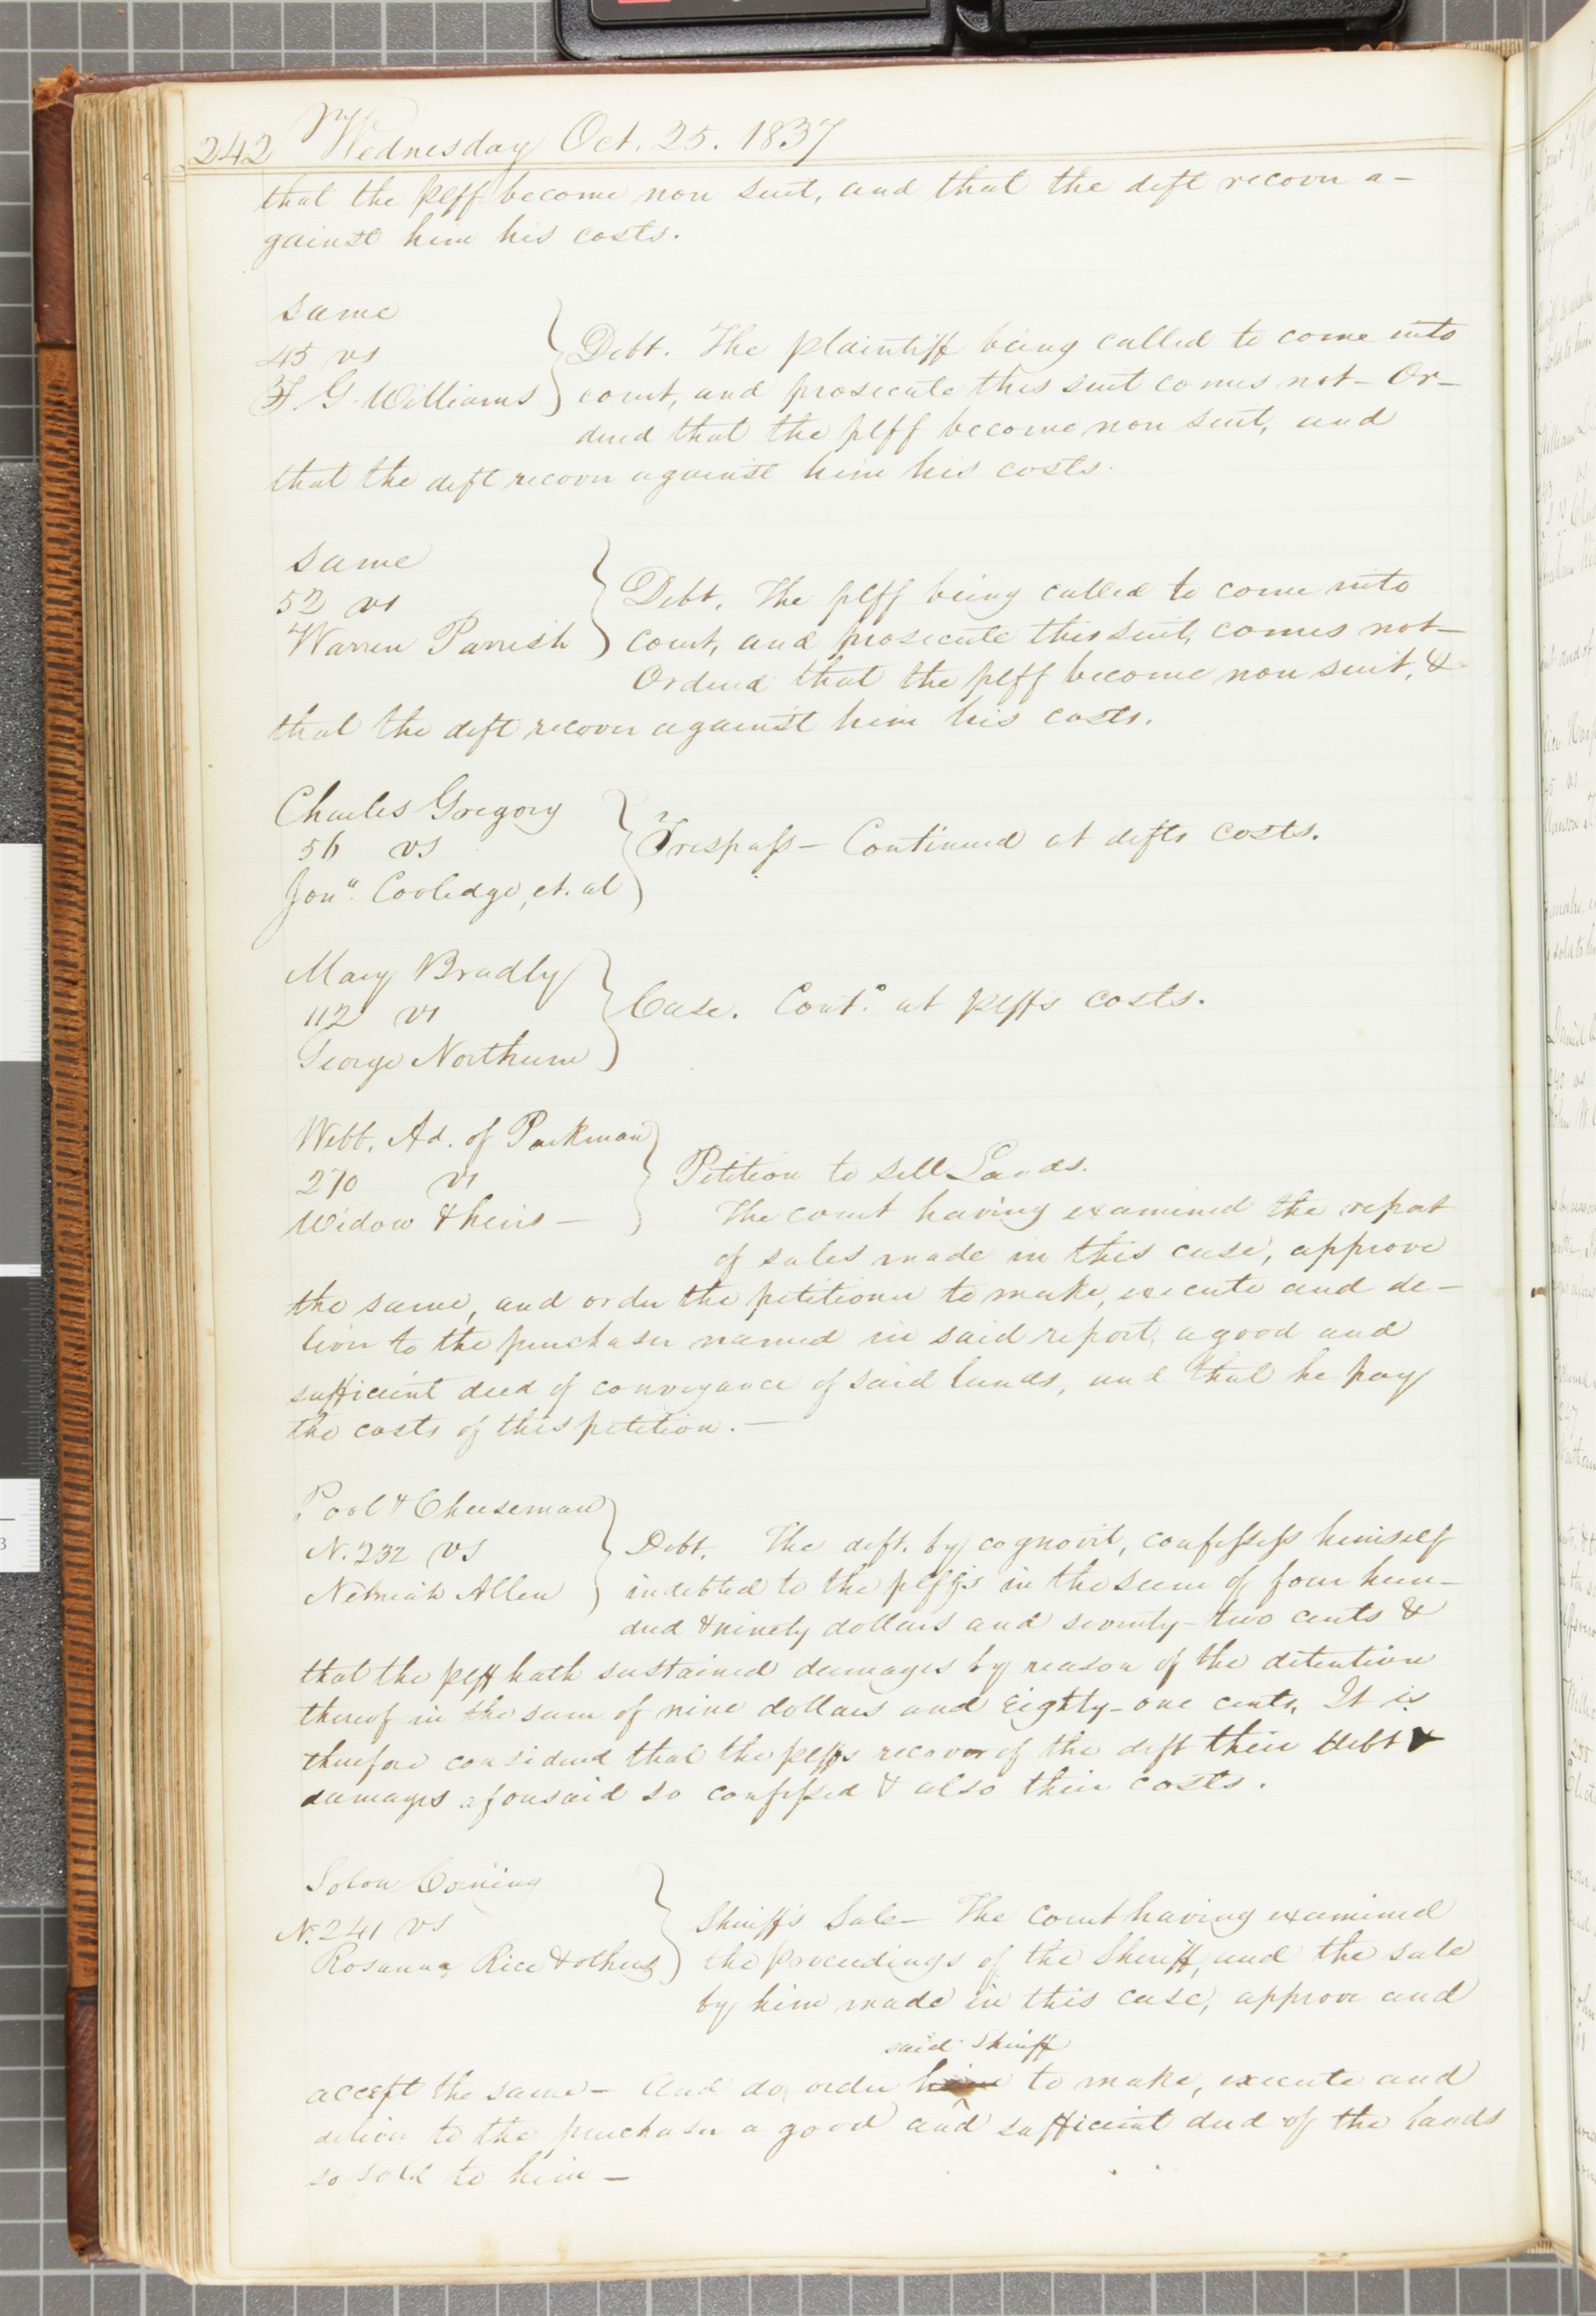 242 Wednesday Oct. 25. 1837
that the plff become non suit, and that the deft recover a-
gainst him his costs.
Same
45 vs
F. G. Williams
Debt. The plaintiff being called to come into
court, and prosecute this suit comes not - Or-
dered that the plff become non suit, and
that the deft recover against him his costs.
Same
52 vs
Warren Parrish
Debt. The plff being called to come into
court, and prosecute this suit, comes not -
Ordered that the plff become non suit, &
that the deft recover against him his costs.
Charles Gregory
56 vs
Jona. Coolidge, et. al
Trespass - Continued at defts costs.
Mary Bradly
112 vs
George Northum
Case. Cont.d at plffs costs.
Webb. Ad. of Parkman
270 vs
Widow & heirs -
Petition to sell Lands.
The court having examined the report
of sales made in this case, approve
the same, and order the petitioner to make, execute and de-
liver to the purchaser named in said report, a good and
sufficient deed of conveyance of said lands, and that he pay
the costs of this petition. -
Pool & Cheeseman
N. 232 vs
Nehmiah Allen
Debt. The deft. by cognovit, confesses himself
indebted to the plffs in the sum of four hun-
dred & ninety dollars and seventy-two cents &
that the plff hath sustained damages by reason of the detention
thereof in the sum of nine dollars and Eighty-one cents. It is
therefore considered that the plffs recover of the deft their debt &
damages aforesaid so confessed & also their costs.
Solon Corning
N. 241 vs
Rosanna Rice & others
Sheriff's Sale - The Court having examined
the proceedings of the Sheriff, and the sale
by him made in this case, approve and
said Sheriff
accept the same - And do order him to make, execute and
deliver to the purchaser a good and sufficient deed of the lands
so sold to him -